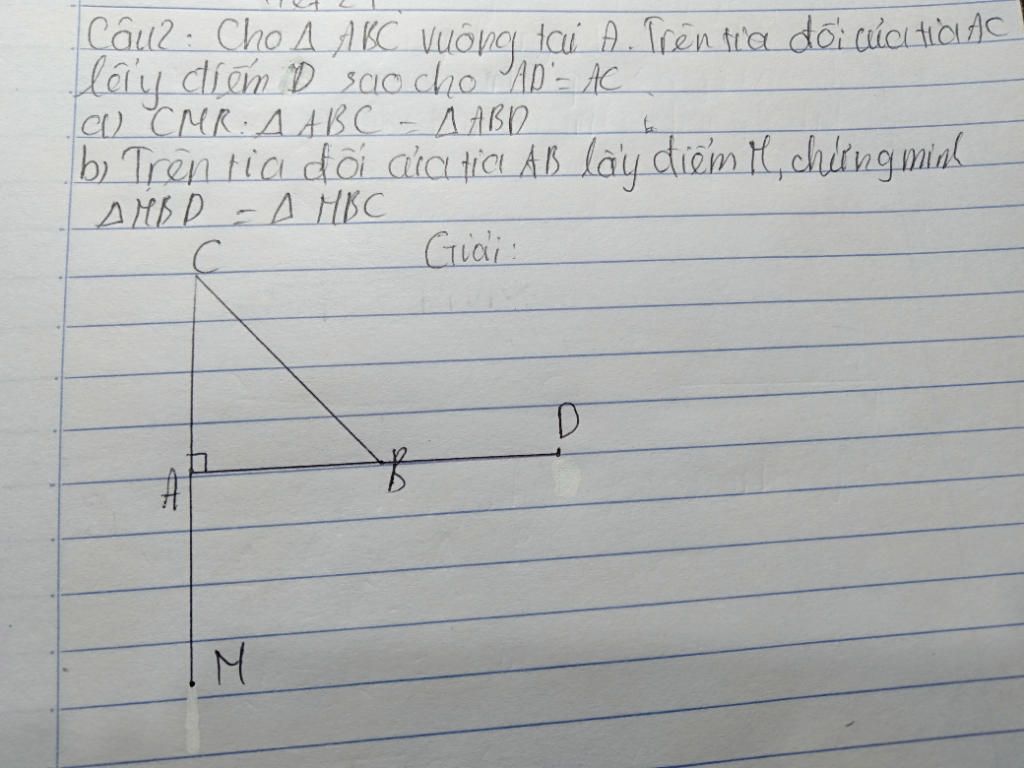 Câu2: Cho Δ ABC vuông tại A. Trên tia đối của tia AC
lấy điểm D sao cho AD = AC
a) CMR: Δ ABC = Δ ABD
b) Trên tia đối của tia AB lấy điểm M, chứng minh
Δ MBD = Δ MBC
Giải:
C
D
A
B
M